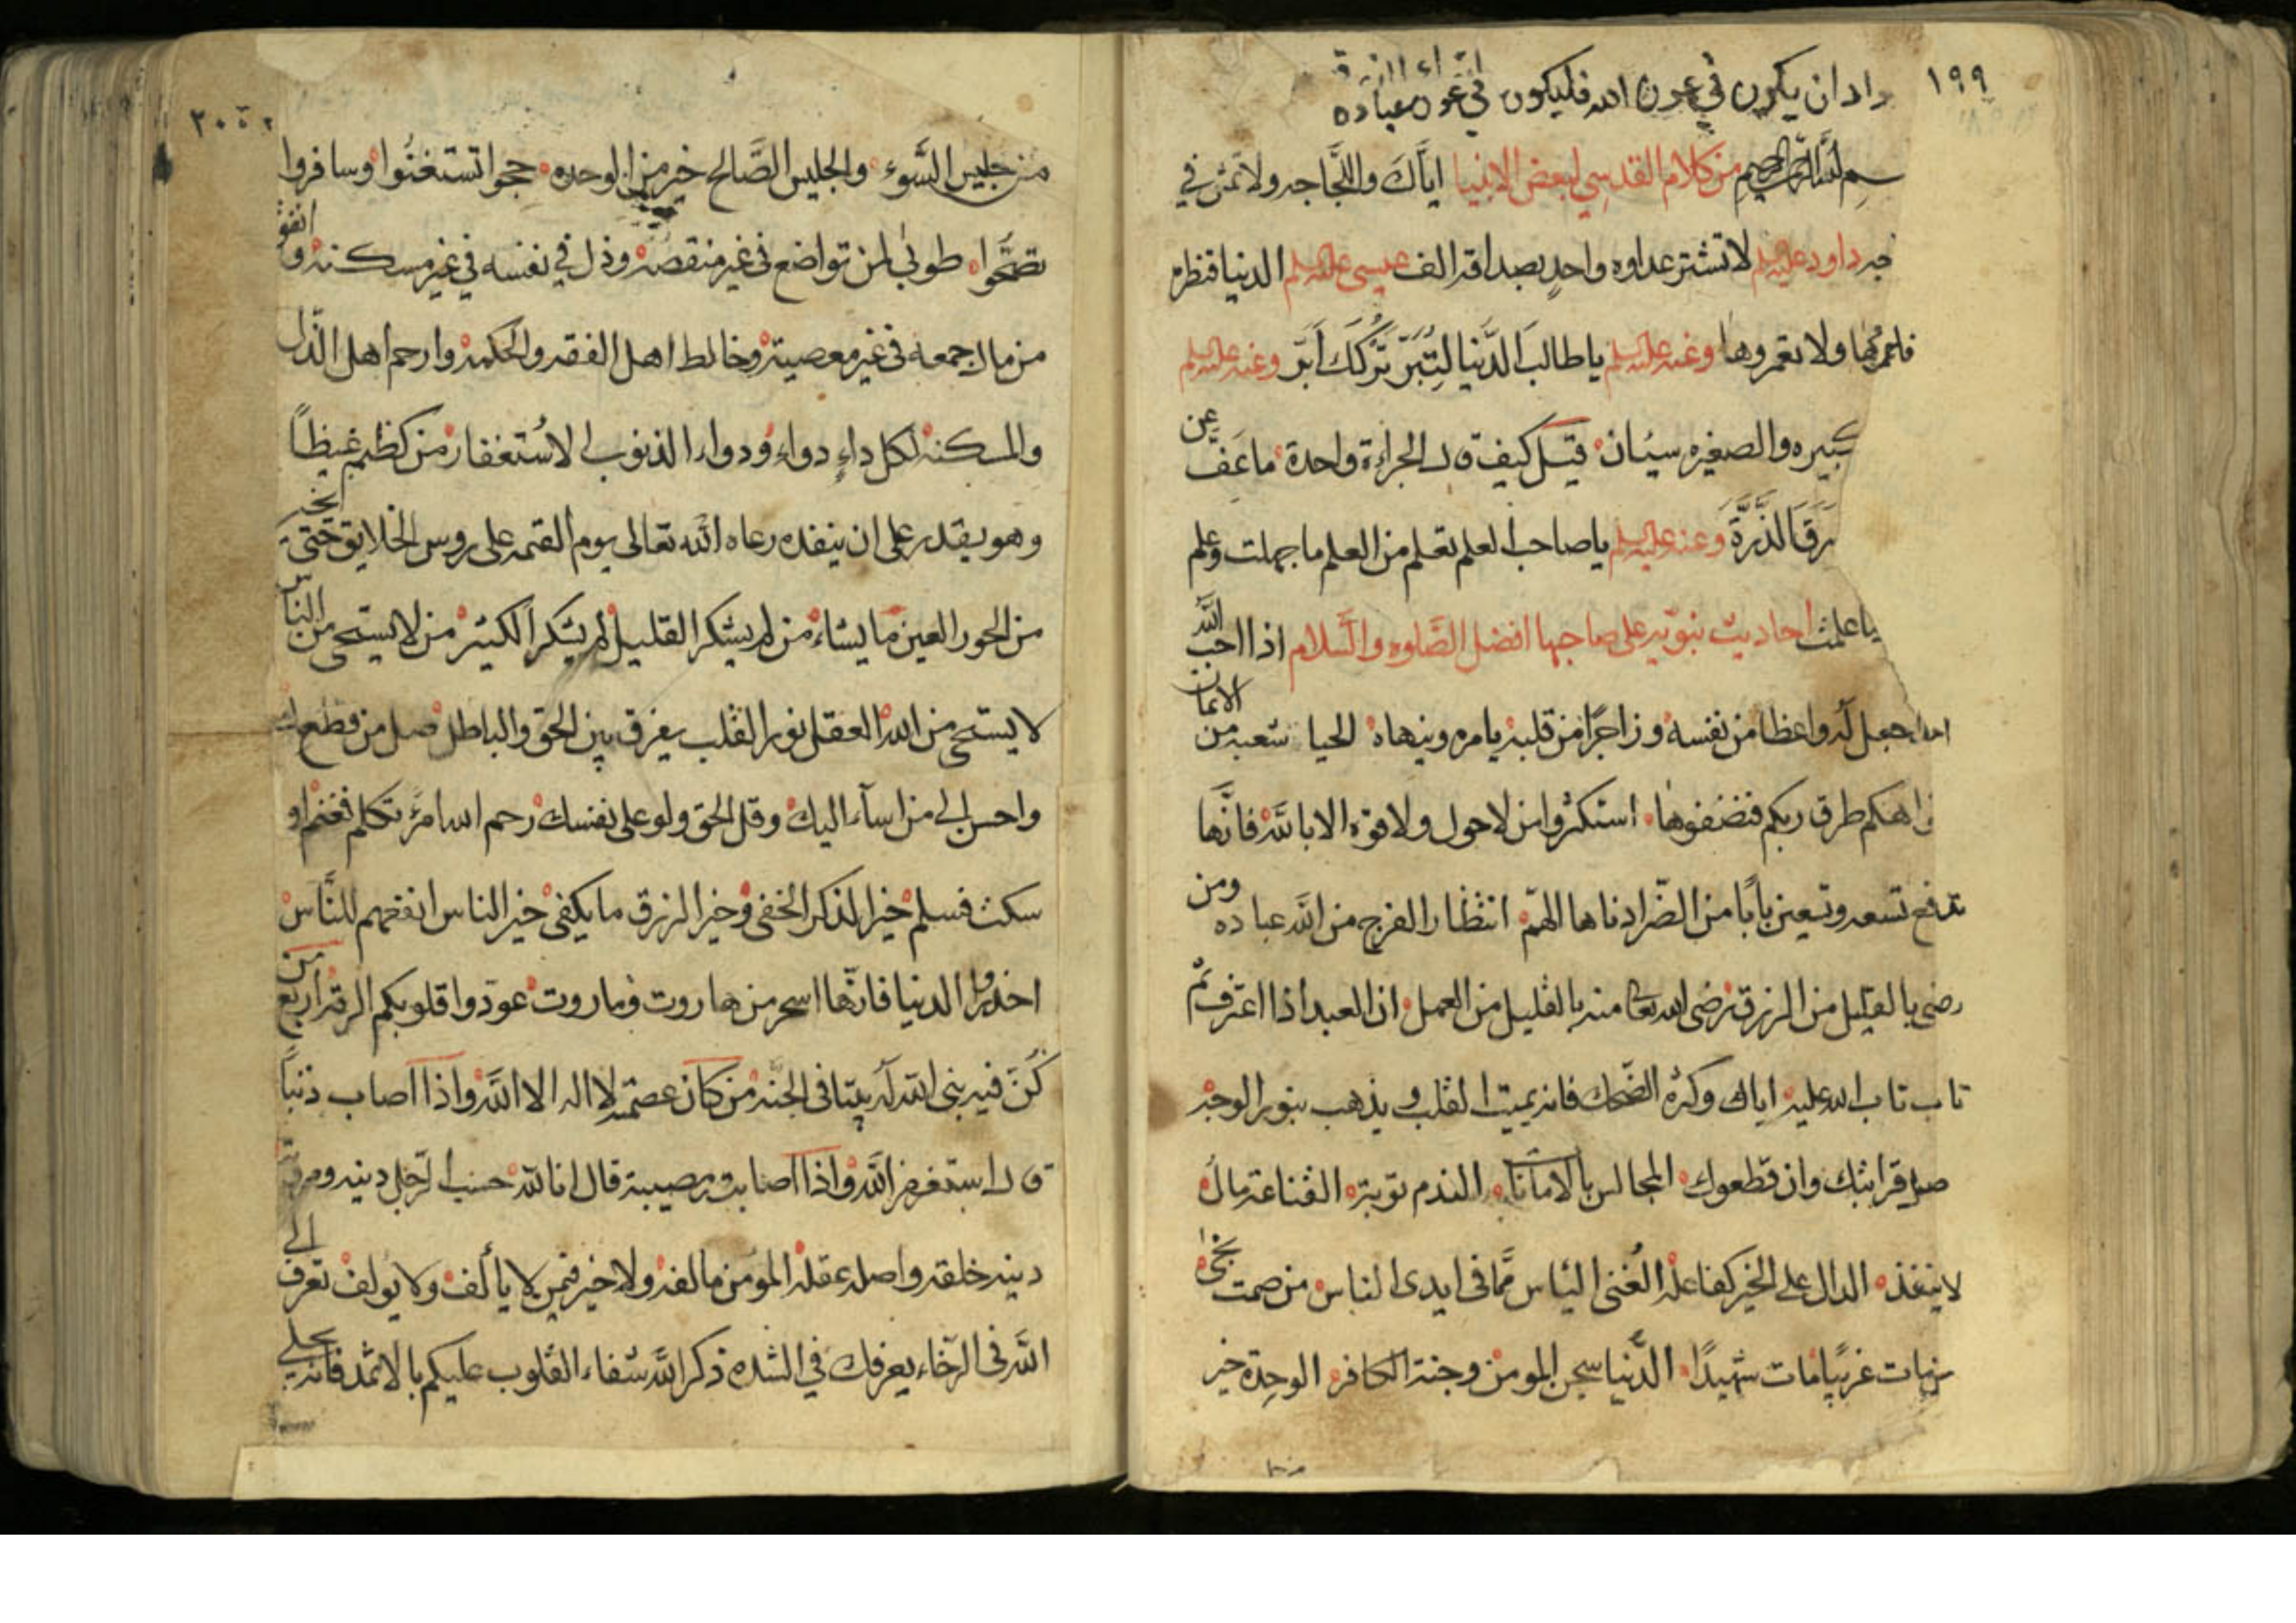 ١٩٩
اد ان يكون في عون الله فليكون في عون عباده
بسم الله الرحمن الرحيم من كلام القدسي لبعض الانبيا اياك واللجاجه ولا تمش في
داود عليه السلم لا تشتر عداوه واحد بصداقه الف عيسى عليه السلم الدنيا قنطره
ولا تعمروها وعنه عليه السلم يا طالب الدنيا لتبر تركك ابر وعنه عليه السلم
كبيره والصغيره سيان قيل كيف قال الجراءة واحدة ما عف عن
سرق الذرة وعنه عليه السلم يا صاحب العلم تعلم من العلم ما جهلت وعلم
ما علمت احاديث نبويه على صاحبها افضل الصلوه والسلام اذا احب الله
جعل له واعظا من نفسه وزاجرا من قلبه يامره وينهاه الحيا شعبه من الايمان
افواهكم طرق ربكم فنضفوها استكثروا من لا حول ولا قوه الا بالله فانها
تدفع تسعه وتسعين بابا من الضر ادناها الهم انتظار الفرج من الله عباده ومن
رضي بالقليل من الرزق رضى الله تعالى منه بالقليل من العمل ان العبد اذا اعترف ثم
تاب تاب الله عليه اياك وكثرة الضحك فانه يميت القلب ويذهب بنور الوجه
صل قرابتك وان قطعوك المجالس بالامانات الندم توبة القناعة مال
لا ينفذ الدال على الخير كفاعله الغنى الياس مما في ايدى الناس من صمت نجى
من مات غريبا مات شهيدا الدنيا سجن المومن وجنة الكافر الوحدة خير
٢٠٠
من جليس السوء والجليس الصالح خير من الوحده حجوا تستغنوا وسافروا
تصحوا طوبى لمن تواضع في غير منقصه وذل في نفسه في غير مسكنه وانفق
من مال جمعه في غير معصية وخالط اهل الفقه والحكمه وارحم اهل الذل
والمسكنه لكل داء دواء ودواء الذنوب الاستغفار من كظم غيظا
وهو يقدر على ان ينفذه دعاه الله تعالى يوم القيمه على روس الخلايق حتى يخير
من الحور العين ما يشاء من لم يشكر القليل لم يشكر الكثير من لا يستحي من الناس
لا يستحي من الله العقل نور القلب يفرق بين الحق والباطل صل من قطعك
واحسن الى من اساء اليك وقل الحق ولو على نفسك رحم الله امرء تكلم فغنم او
سكت فسلم خير الذكر الخفى وخير الرزق ما يكفى خير الناس انفعهم للناس
احذروا الدنيا فانها اسحر من هاروت وماروت عودوا قلوبكم الرقه اربع من
كن فيه بنى الله له بيتا في الجنه من كان عصمته لا اله الا الله واذا اصاب ذنبا
قال استغفر الله واذا اصابه مصيبة قال انا لله حسب الرجل دينه ومروته
دينه خلقه واصله عقله المومن مالفه ولا خير فيمن لا يألف ولا يولف تعرف الى
الله في الرخاء يعرفك في الشده ذكر الله شفاء القلوب عليكم بالاثمد فانه يجلي